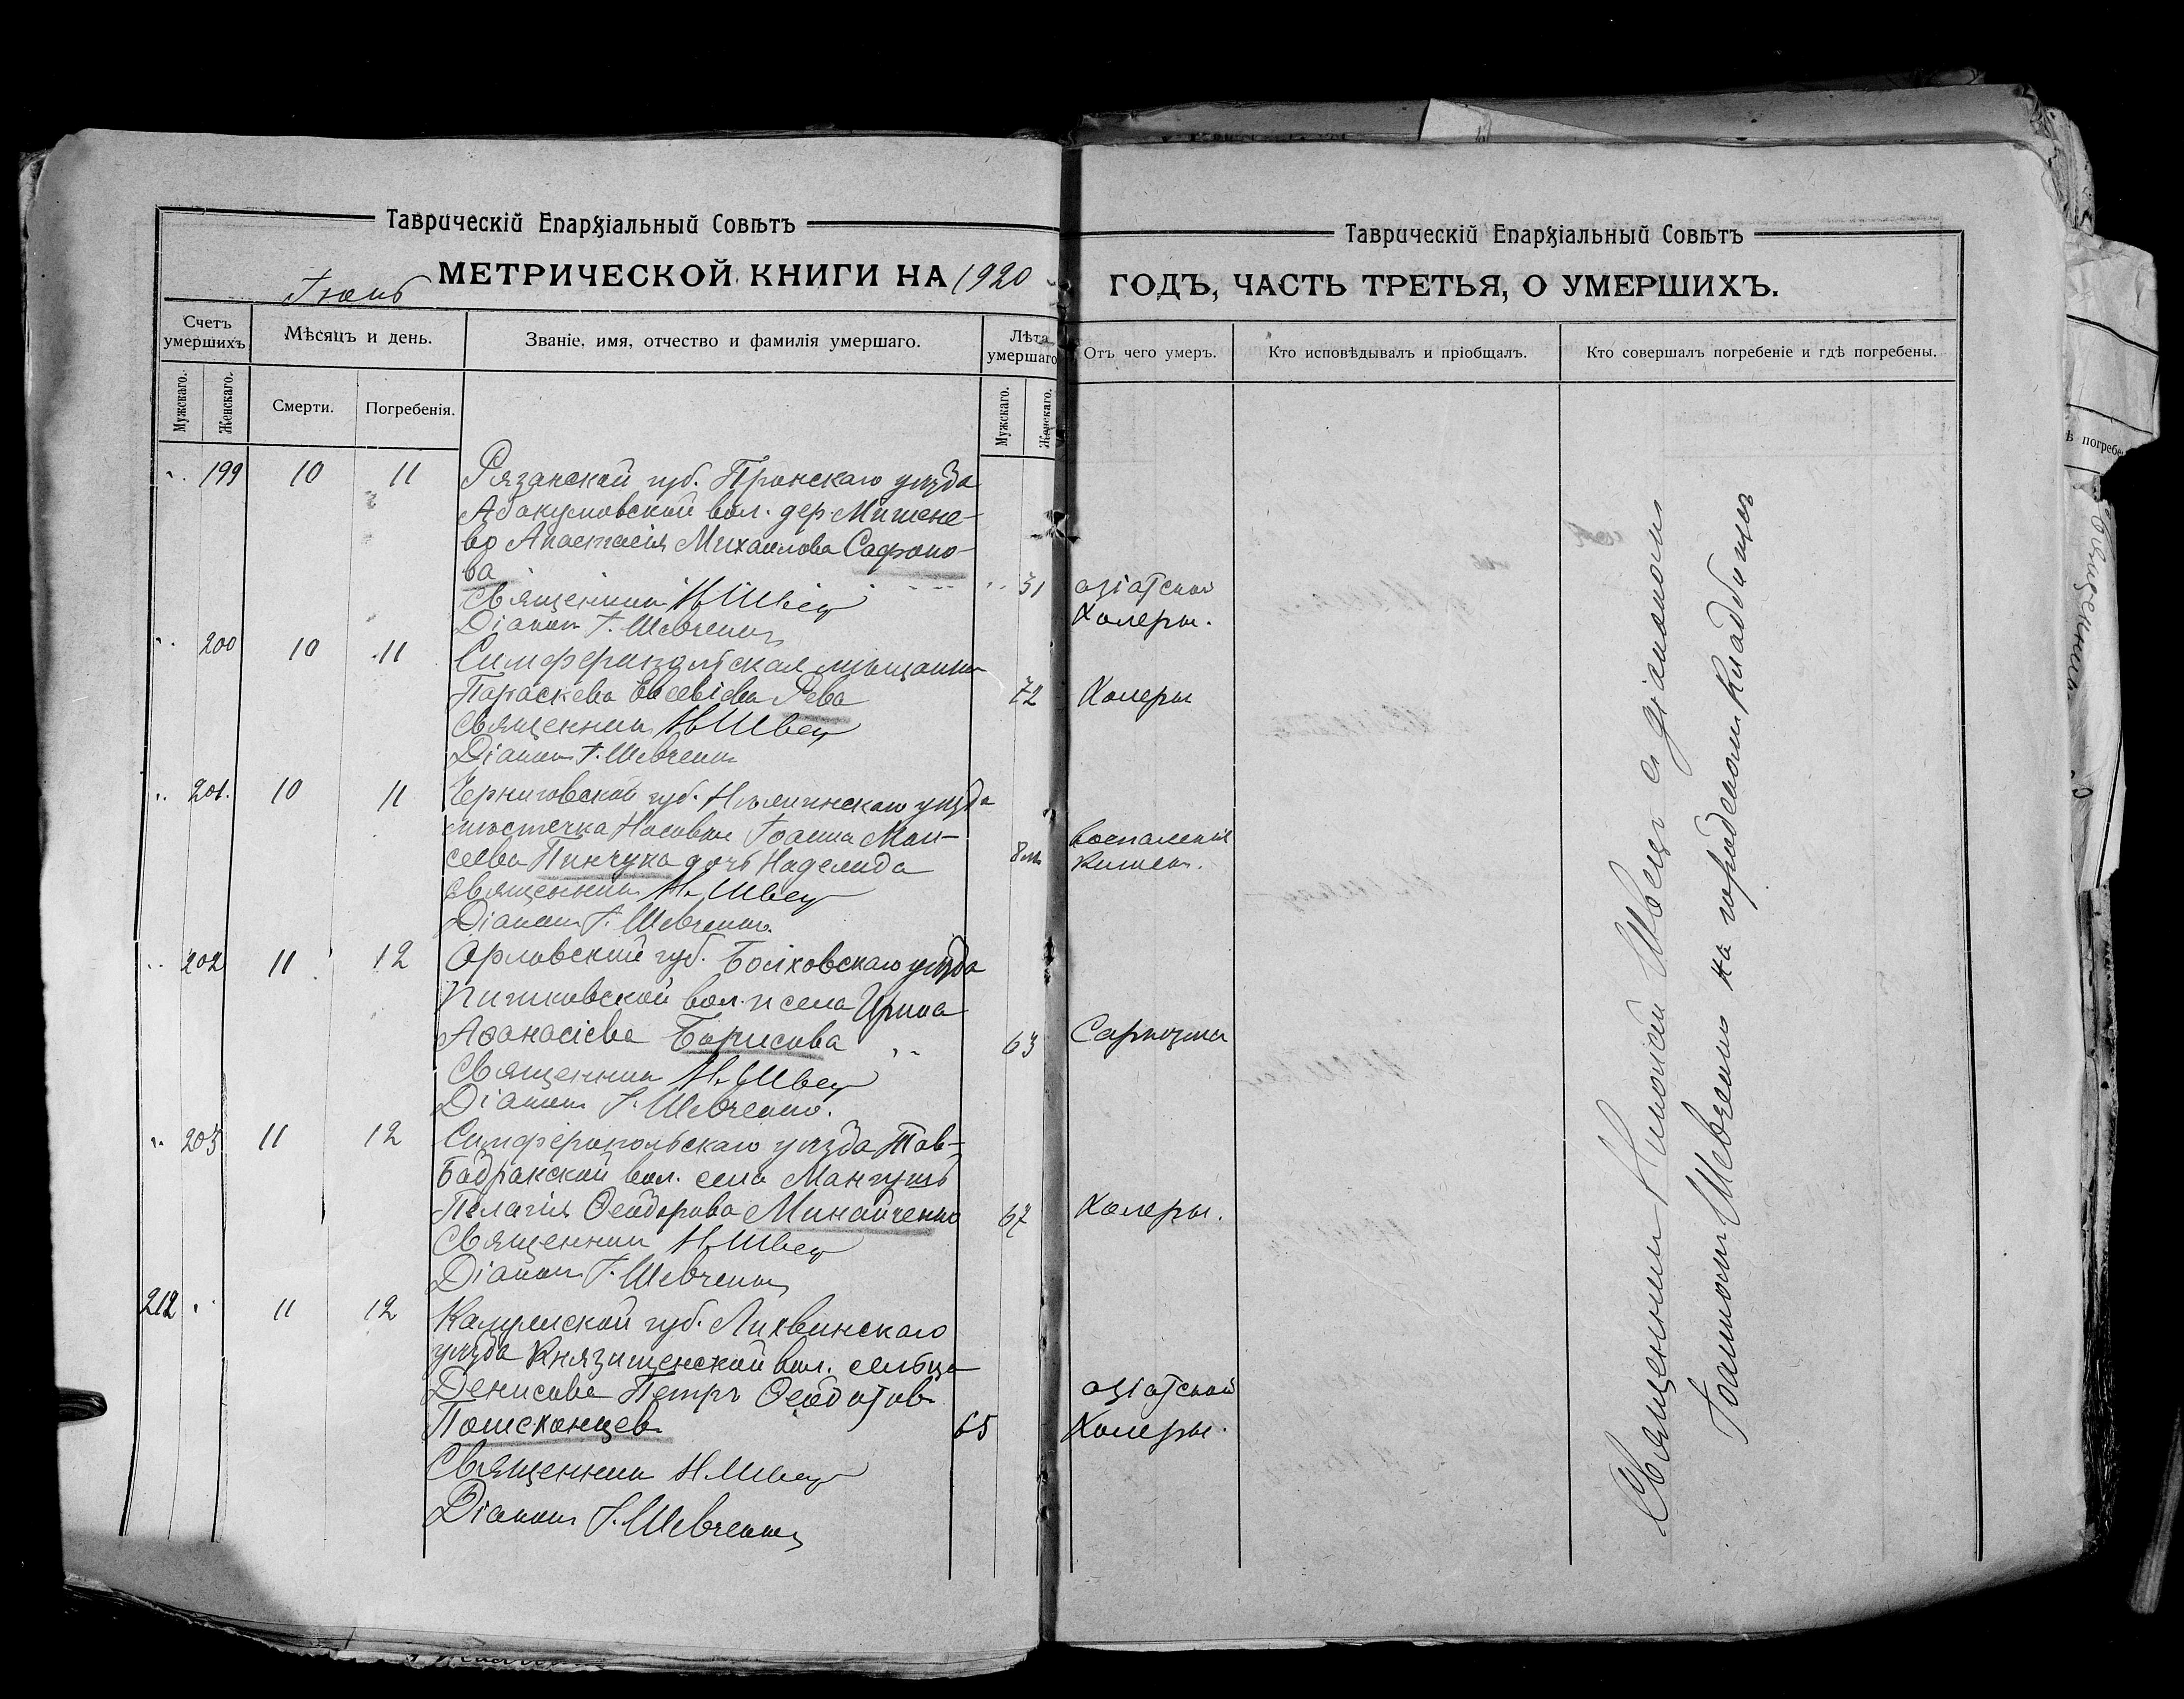 Таврическій Епархіальный Совѣтъ
МЕТРИЧЕСКОЙ КНИГИ НА 1920
Счетъ умершихъ
Мѣсяцъ и день.
Званіе, имя, отчество и фамилія умершаго.
Лѣта умершаго
Мужскаго.
Женскаго.
Смерти.
Погребенія.
Мужскаго.
Женскаго.
199 10 11 Рязанской губ. Пронскаго уѣзда
Абакумовской вол. дер. Мишене-
во Анастасія Михаилова Сафоно-
ва 31
Священник Н. Швец
Діакон І. Шевченко
200 10 11 Симферопольская мѣщанка
Параскева Евсевіева Рева 72
Священник Н. Швец
Діакон І. Шевченко
201. 10 11 Черниговской губ. Нѣжинскаго уѣзда
мѣстечка Носовки Іоанна Мои-
сеева Пинчука дочь Надежда 8 м
Священник Н. Швец
Діакон І. Шевченко
202 11 12 Орловской губ. Болховскаго уѣзда
вол. и села Ирина
Афанасіева Борисова 63
Священник Н. Швец
Діакон І. Шевченко.
203 11 12 Симферопольскаго уѣзда Тав-
Бадракской вол. села Мангушъ
Пелагія Ѳеодорова Минайченко 67
Священник Н. Швец
Діакон І. Шевченко
212 11 12 Калужской губ. Лихвинскаго
уѣзда Князищенской вол. сельца
Денисова Петръ Ѳеодотов
Пошехонцев 65
Священник Н. Швец
Діакон І. Шевченко
Таврическій Епархіальный Совѣтъ
ГОДЪ, ЧАСТЬ ТРЕТЬЯ, О УМЕРШИХЪ.
Отъ чего умеръ.
Кто исповѣдывалъ и пріобщалъ.
Кто совершалъ погребеніе и гдѣ погребены.
азіатской
Холеры.
Холеры
воспаленія
Кишек.
Саркома
Холеры.
азіатской
Холеры.
Священник Николай Швец с діаконом
Іоанном Шевченко на городском кладбищѣ
ѣ погребе
Священник